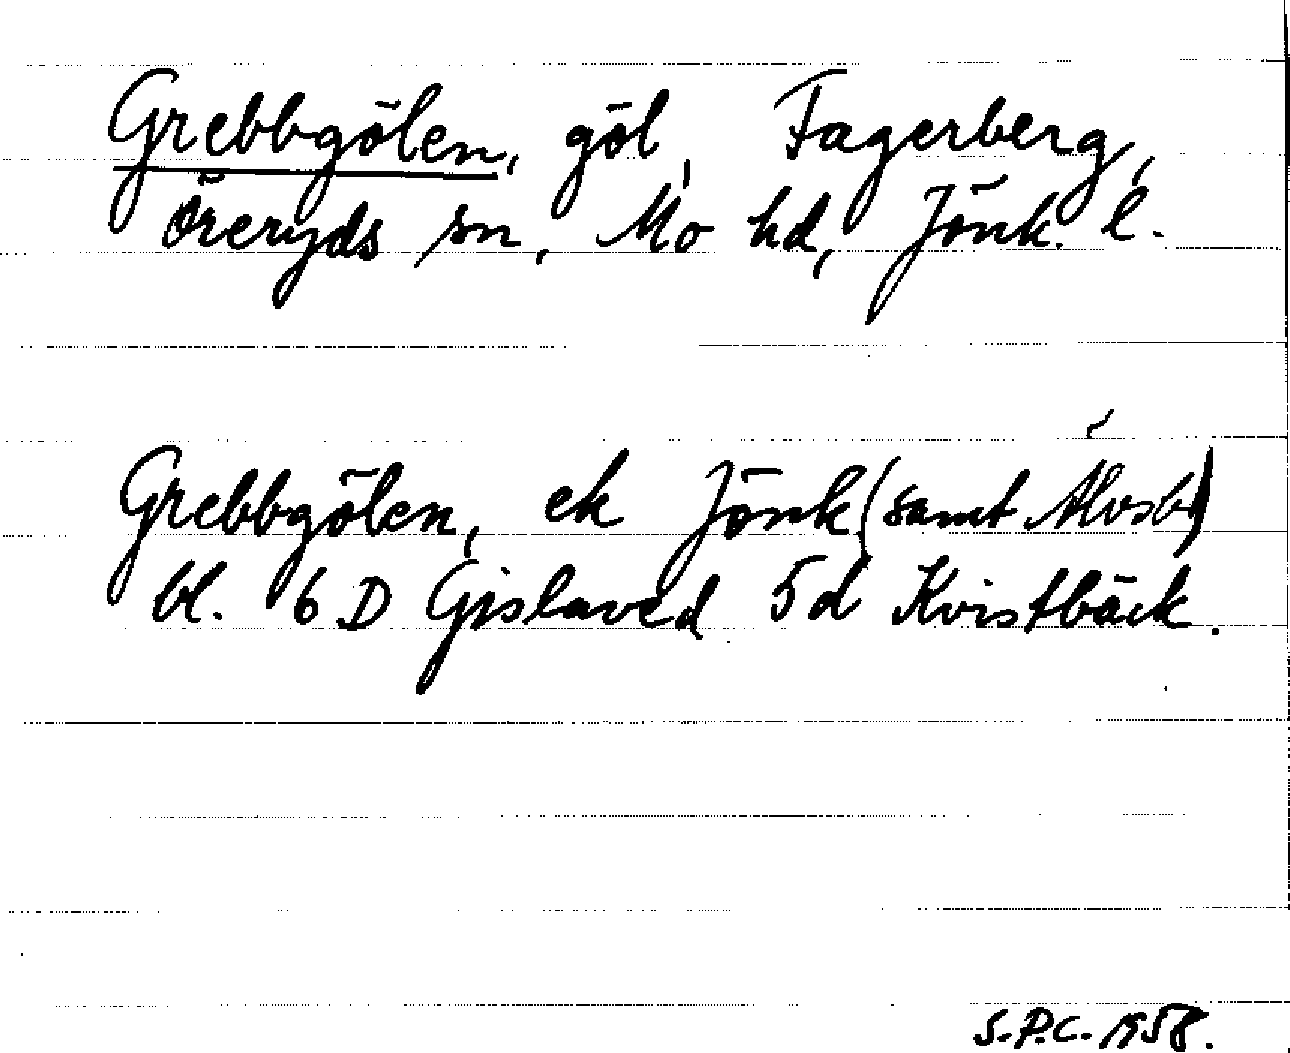 Grebbgölen, göl, Fagerberg,
Öreryds sn, Mo hd, Jönk. l.
Grebbgölen, ek Jönk (samt Älvsb)
bl. 6 D Gislaved 5d Kvistbäck.
S.P.C. 1958.